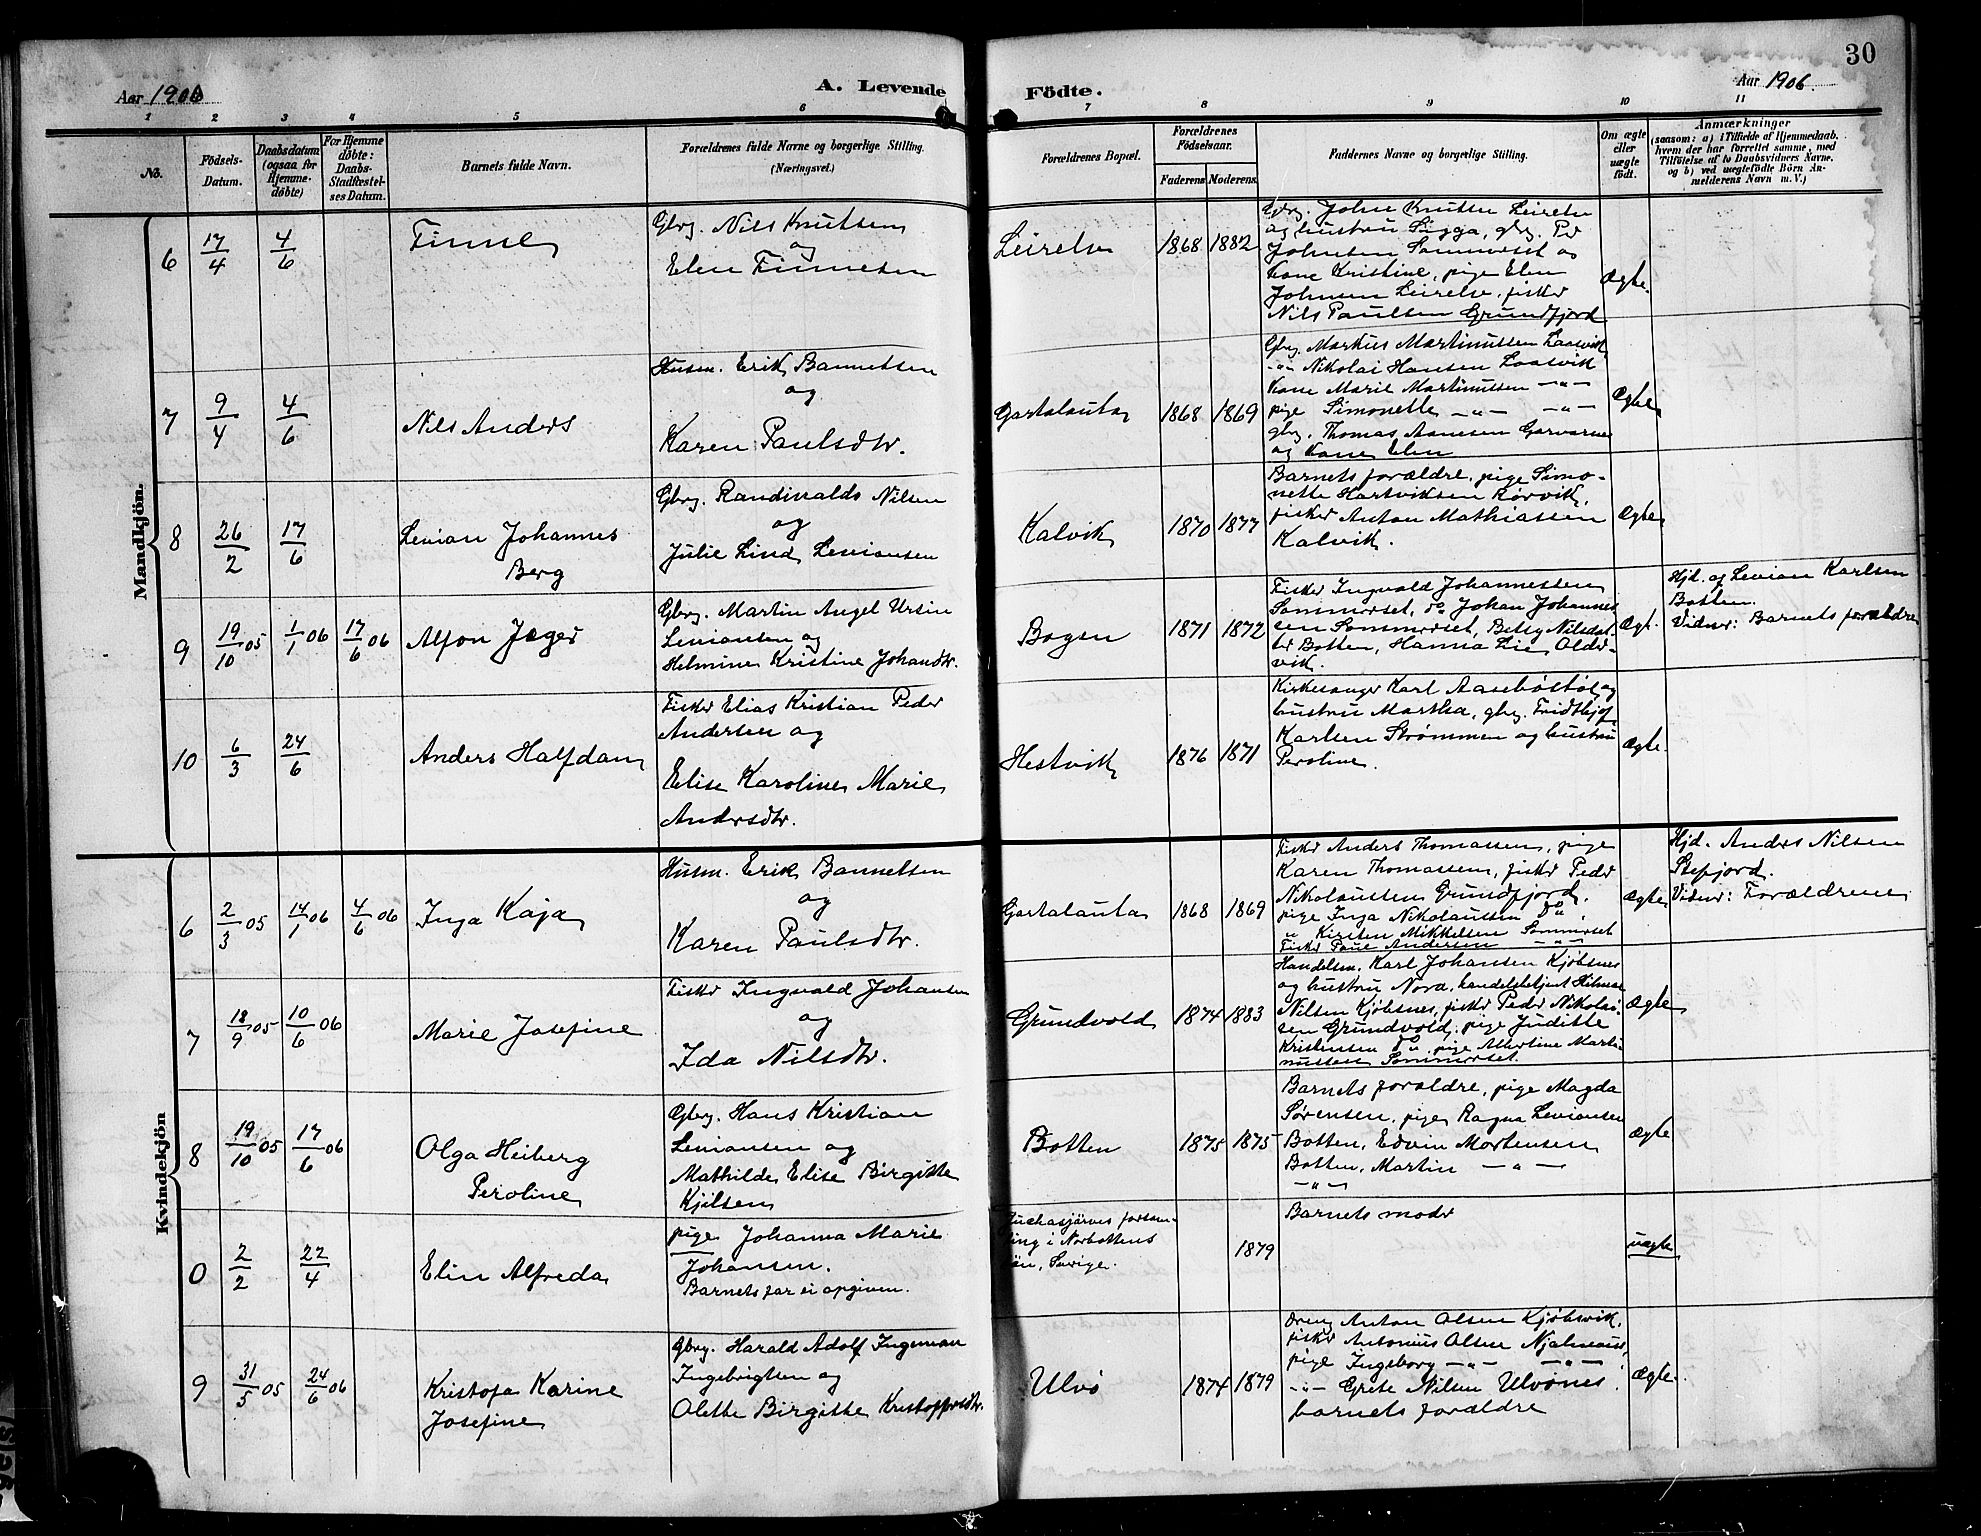 30
Aar 1906
A. Levende Födte.
Aar 1906.
1 2 3 4 5 6 7 8 9 10 11
No.
Födsels-
Datum.
Daabsdatum
(ogsaa for
Hjemme-
döbte)
For Hjemme
döbte:
Daabs-
Stadfæstel-
ses Datum.
Barnets fulde Navn.
Forældrenes fulde Navne og borgerlige Stilling.
(Næringsvei.)
Forældrenes Bopæl.
Forældrenes
Födselsaar.
Faderens Moderens.
Faddernes Navne og borgerlige Stilling.
Om ægte
eller
uægte
født.
Anmærkninger
(saasom: a) i Tilfælde af Hjemmedaab,
hvem der har forrettet samme, med
Tilføielse af to Daabsvidners Navne.
og b) ved uægtefödte Börn An-
melderens Navn m. V.)
Mandkjön.
6
17/4
4/6
Finne
Gbrg. Nils Knutsen
og
Elen Finnesen
Leirelv
1868 1882
Gbrg. John Knutsen Leirelv
og hustru Sigga, gbrg. Per
Johnsen Sommerset og
kone Kristine, pige Elen
Johnsen Leirelv, fisker
Nils Paulsen Grundfjord
Ægte.
7
9/4
4/6
Nils Anders
Husm. Erik Bannetsen
og
Karen Paulsdtr.
Gartalauta
1868 1869
Gbrg. Markus Martinussen Laasvik
-"- Nikolai Hansen Laasvik
Kone Marie Martinussen -"-
pige Simonette -"- -"-
gbrg. Thomas Aanesen
og kone Elen
Ægte
8
26/2
17/6
Levian Johannes
Berg
Gbrg. Randinalds Nilsen
og
Julie Lind Leviansen
Kalvik
1870 1877
Barnets forældre, pige Simo-
nette Hartviksen Rørvik,
fisker Anton Mathiassen
Kalvik.
Ægte
9
19/10 05
1/1 06
17/6 06
Alfon Jæger
Gbrg. Martin Angel Ursin
Leviansen og
Helmine Kristine Johandtr.
Bogen
1871 1872
Fisker Ingvald Johannessen
Sommerset, do Johan Johannes
sen Sommerset, Betsy Nilsdat-
ter Botten, Hanna Lie, Older-
vik.
Ægt.
Hjd. af Levian Karlsen
Botten.
Vidner: Barnets forældre
10
6/3
24/6
Anders Halfdan
Fisker Elias Kristian Peder
Andersen og
Elise Karoline Marie
Andersdtr.
Hestvik
1876 1871
Kirkesanger Karl Aasebøstøl og
hustru Martha, gbrg. Fridthjof
Karlsen Strømmen og hustru
Peroline.
Ægte.
Kvindekjön
6
2/3 05
14/1 06
4/6 06
Inga Kaja
Husm. Erik Bannetsen
og
Karen Paulsdtr.
Gartalauta
1868 1869
Fisker Anders Thomassen, pige
Karen Thomassen, fisker Peder
Nikolaussen Grundfjord,
pige Inga Nikolaussen do
" Kirsten Mikkelsen Sommerset
Fisker Paul Andersen -"-
Ægte
Hjd. Anders Nilsen
Stefjord.
Vidner: Forældrene
7
18/9 05
10/6 06
Marie Josefine
Fisker Ingvald Johansen
og
Ida Nilsdtr.
Grundvold
1874 1883
Handelsm. Karl Johansen Kjøbsnes
og hustru Nora, handelsbetjent Hilmar
Nilsen Kjøbsnes, fisker Peder Nikolai-
sen Grundvold, pige Juditte
Kristensen do, pige Albertine Marti-
nussen Sommerset.
Ægte
8
19/10 05
17/6 06
Olga Heiberg
Peroline
Gbrg. Hans Kristian
Leviansen og
Mathilde Elise Birgitte
Kjelsen
Botten
1875 1875
Barnets forældre, pige Magda
Sørensen, pige Ragna Leviansen
Botten, Edvin Mortensen
Botten, Martin -"-
-"-
Ægte
0
2/2
22/4
Elin Alfreda
pige Johanna Marie
Johansen.
Barnets far ei opgiven.
försam-
ling i Norbottens
län, Sverige.
1879
Barnets moder
uægte
9
31/5 05
24/6 06
Kristofa Karine
Josefine
Gbrg. Harald Adolf Ingeman
Ingebrigtsen og
Olette Birgitte Kristoffersdtr.
Ulvø
1874 1879
Dreng Anton Olsen Kjøbsvik,
fisker Antonius Olsen
pige Ingeborg -"- -"-
-"- Grete Nilsen Ulvønes,
barnets forældre
Ægte.